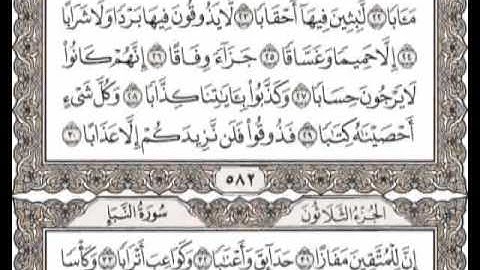 مَـَٔابًا ٢٢ لَّٰبِثِينَ فِيهَآ أَحْقَابًا ٢٣ لَّا يَذُوقُونَ فِيهَا بَرْدًا وَلَا شَرَابًا
٢٤ إِلَّا حَمِيمًا وَغَسَّاقًا ٢٥ جَزَآءً وِفَاقًا ٢٦ إِنَّهُمْ كَانُوا۟
لَا يَرْجُونَ حِسَابًا ٢٧ وَكَذَّبُوا۟ بِـَٔايَٰتِنَا كِذَّابًا ٢٨ وَكُلَّ شَىْءٍ
أَحْصَيْنَٰهُ كِتَٰبًا ٢٩ فَذُوقُوا۟ فَلَن نَّزِيدَكُمْ إِلَّا عَذَابًا ٣٠
٥٨٢
الجُزْءُ الثَّلَاثُونَ سُورَةُ النَّبَإِ
إِنَّ لِلْمُتَّقِينَ مَفَازًا ٣١ حَدَآئِقَ وَأَعْنَٰبًا ٣٢ وَكَوَاعِبَ أَتْرَابًا ٣٣ وَكَأْسًا